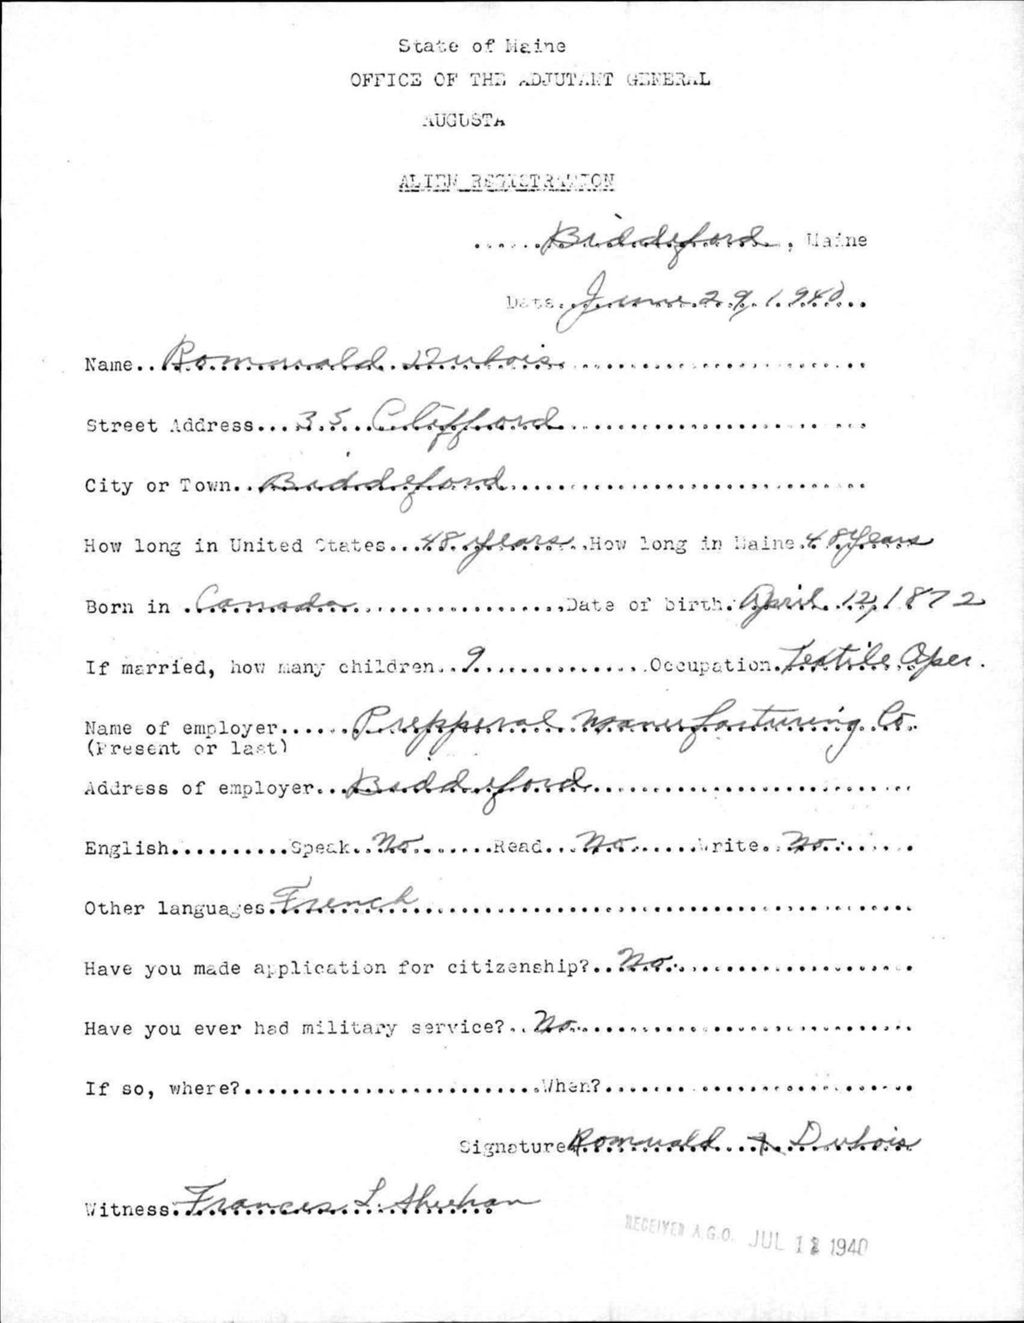 State of Maine
OFFICE OF THE ADJUTANT GENERAL
AUGUSTA
ALIEN REGISTRATION
......Biddeford..., Maine
Date..June 29, 1940...
Name..Romuald Dubois
Street Address...35 Clifford
City or Town..Biddeford
How long in United States...48 years..How long in Maine.48 years
Born in .Canada....Date of birth.April 12, 1872
If married, how many children..9....Occupation.Textile Oper.
Name of employer......Prepperal Manufacturing Co.
(Present or last)
Address of employer...Biddeford
English..........Speak..No.......Read...No......Write..No......
Other languages.French
Have you made application for citizenship?..No
Have you ever had military service?..No
If so, where?....When?....
Signature Romuald x Dubois
Witness.Frances L. Sheehan
RECEIVED A.G.O. JUL 12 1940